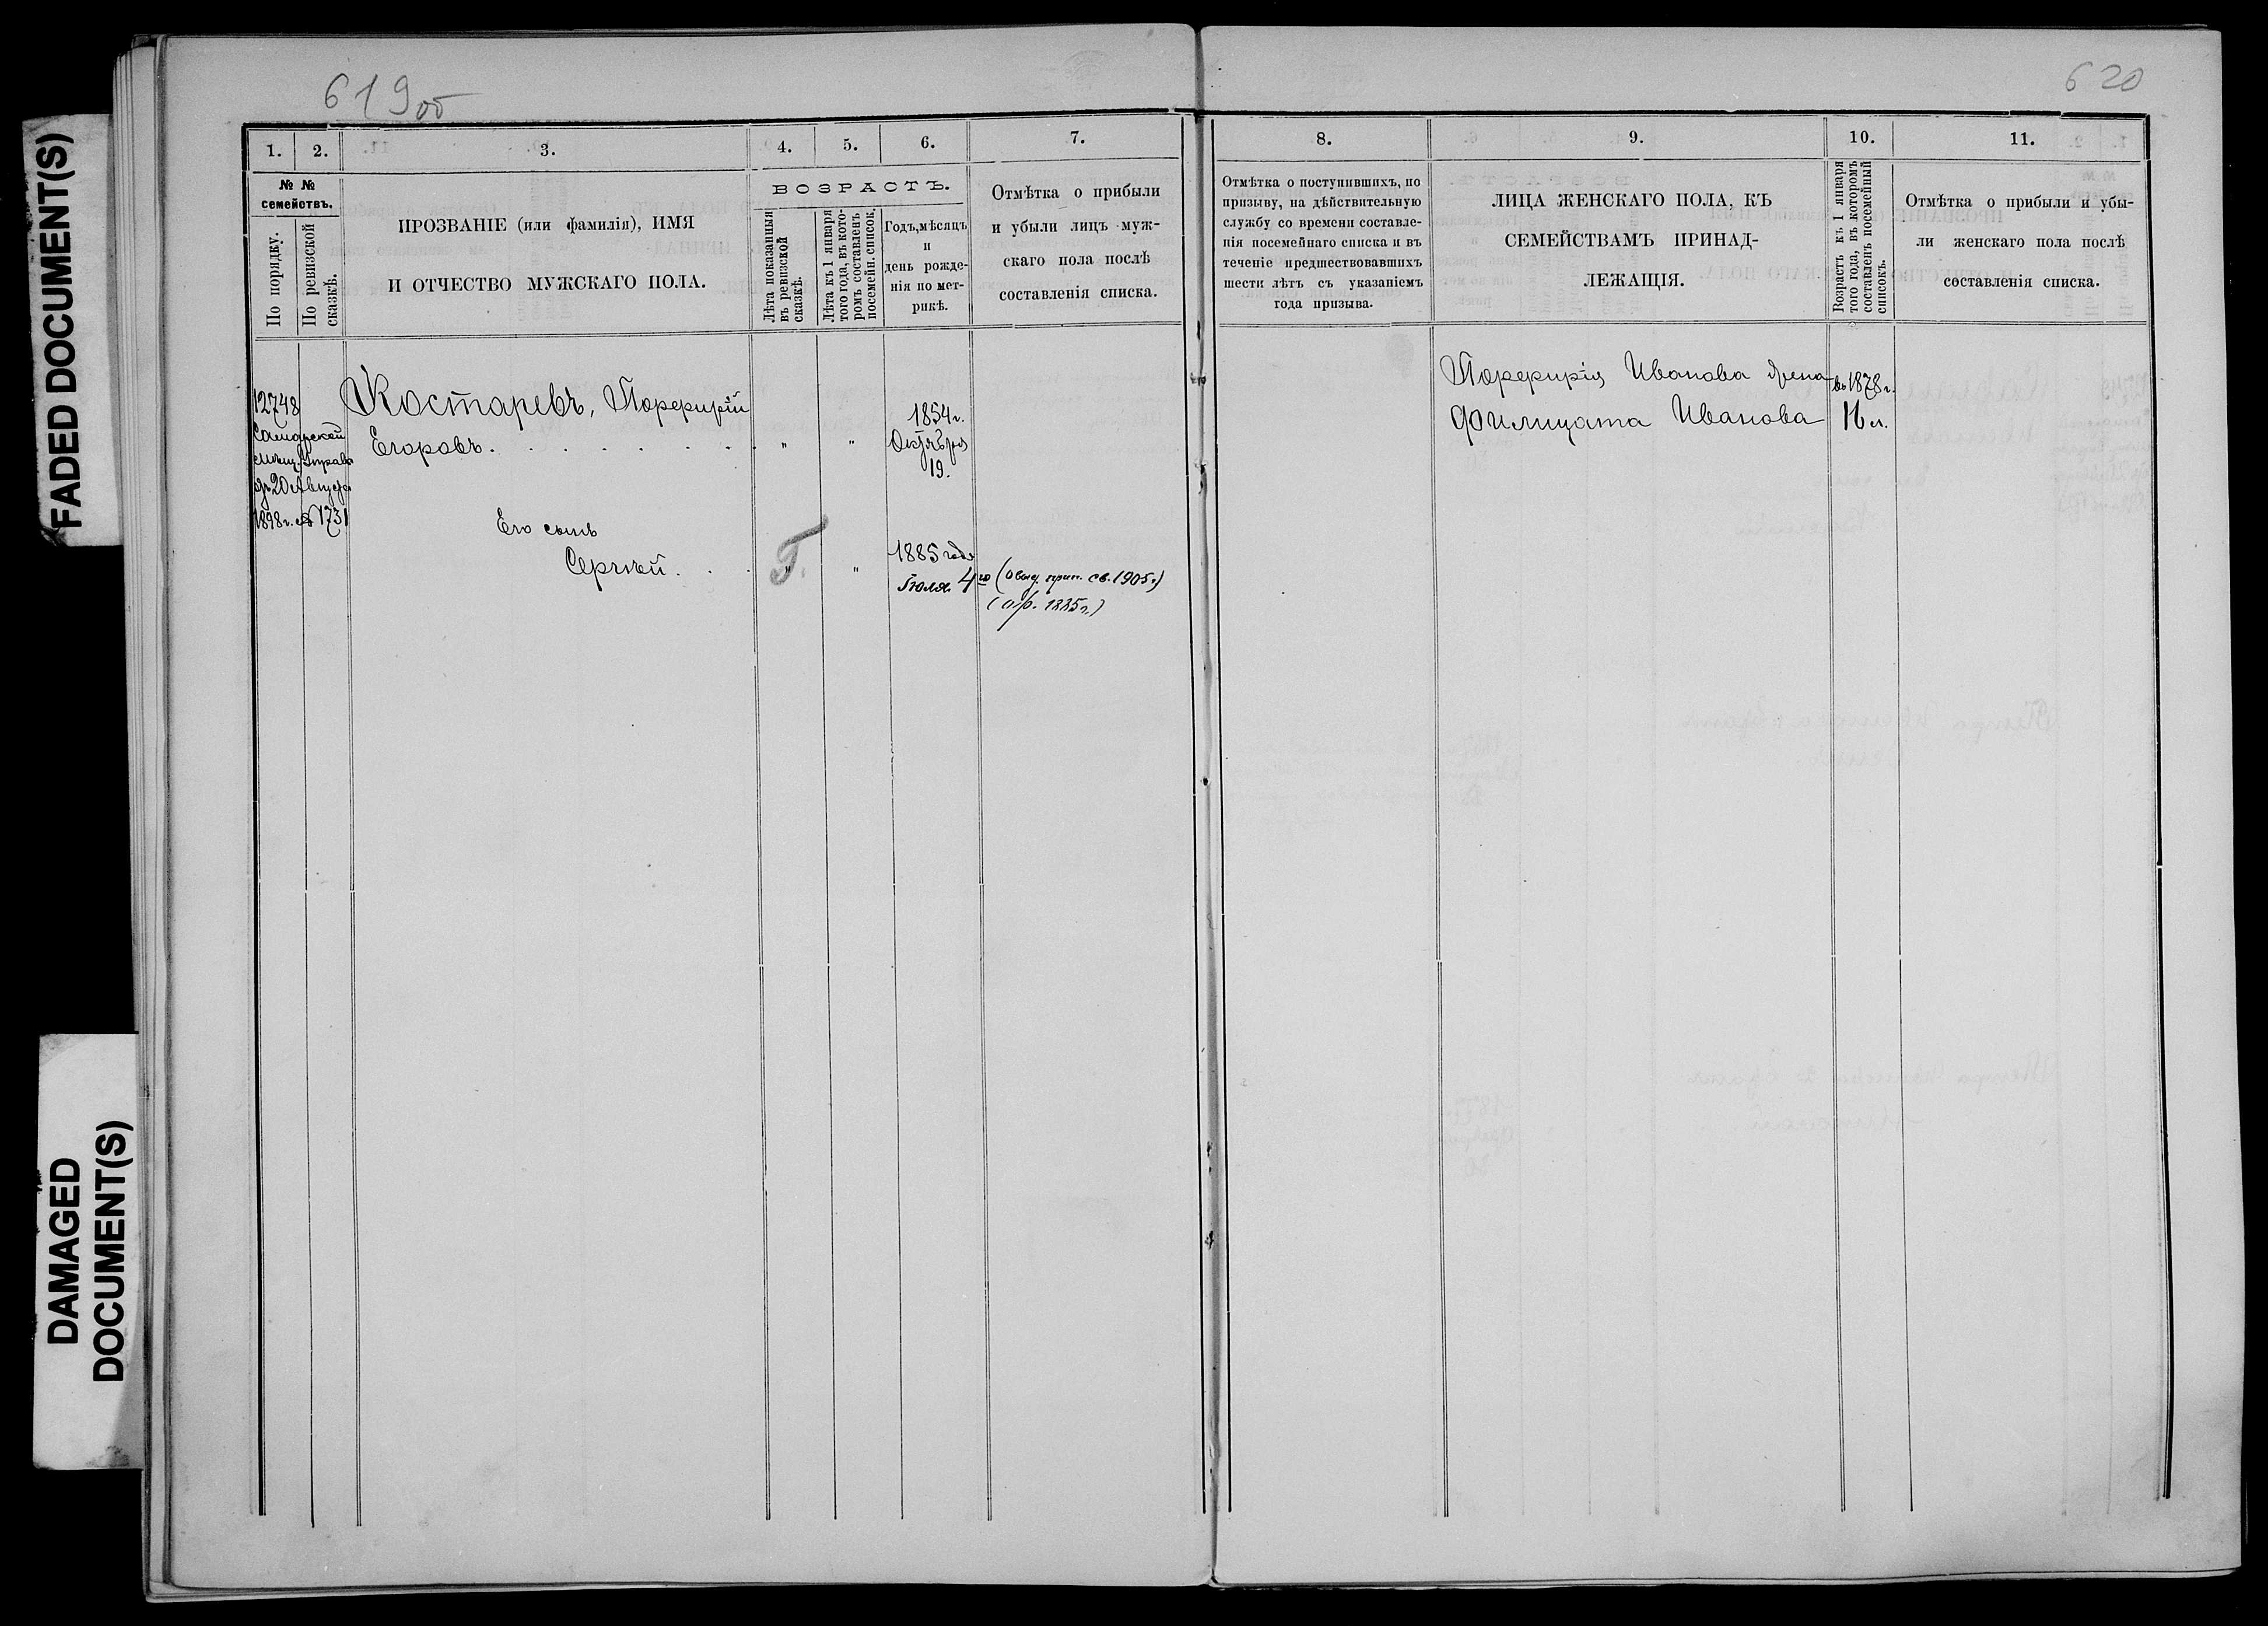 FADED DOCUMENT(S)
DAMAGED
DOCUMENT(S)
619об
1. 2. 3. 4. 5. 6. 7.
№ №
семействъ.
По порядку.
По ревизской
сказкѣ.
ПРОЗВАНІЕ (или фамилія), ИМЯ
И ОТЧЕСТВО МУЖСКАГО ПОЛА.
ВОЗРАСТЪ.
Лѣта показанныя
въ ревизской
сказкѣ.
Лѣта къ 1 января
того года, въ кото-
ромъ составленъ
посемейн. список.
Годъ, мѣсяцъ
и
день рожде-
нія по мет-
рикѣ.
Отмѣтка о прибыли
и убыли лицъ муж-
скаго пола послѣ
составленія списка.
12748
Самарской
мѣщ. Управы
20 Августа
1898 г. № 1731
Костаревъ, Порфирій
Егоровъ. . . . . . .
" "
1854 г.
Октября
19.
Его сынъ
Сергѣй. . .
" "
1885 года
Іюля 4го
св. 1905 г.)
1885 г.)
620
8. 9. 10. 11.
Отмѣтка о поступившихъ, по
призыву, на дѣйствительную
службу со времени составле-
нія посемейнаго списка и въ
теченіе предшествовавшихъ
шести лѣтъ съ указаніемъ
года призыва.
ЛИЦА ЖЕНСКАГО ПОЛА, КЪ
СЕМЕЙСТВАМЪ ПРИНАД-
ЛЕЖАЩІЯ.
Возрастъ къ 1 января
того года, въ которомъ
составленъ посемейный
списокъ.
Отмѣтка о прибыли и убы-
ли женскаго пола послѣ
составленія списка.
Порфирія Иванова жена въ 1878 г.
Филицата Иванова 16 л.